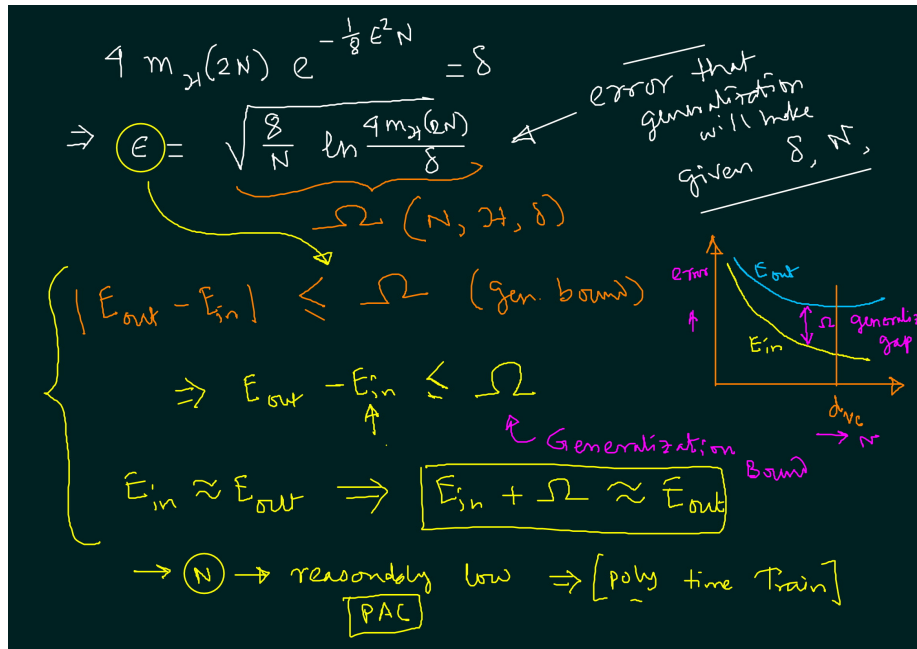 4 m_H(2N) e^{-1/8 ε² N} = δ
⇒ ε = √(8/N ln 4m_H(2N)/δ)
error that
generalization
will make
given δ, N,
Ω (N, H, δ)
|E_out − E_in| ≤ Ω (gen. bound)
⇒ E_out − E_in ≤ Ω
Generalization
Bound
E_in ≈ E_out ⇒ E_in + Ω ≈ E_out
→ N → reasonably low ⇒ [poly time Train]
PAC
error
↑
E_out
E_in
Ω
generaliz
gap
d_vc
→ N